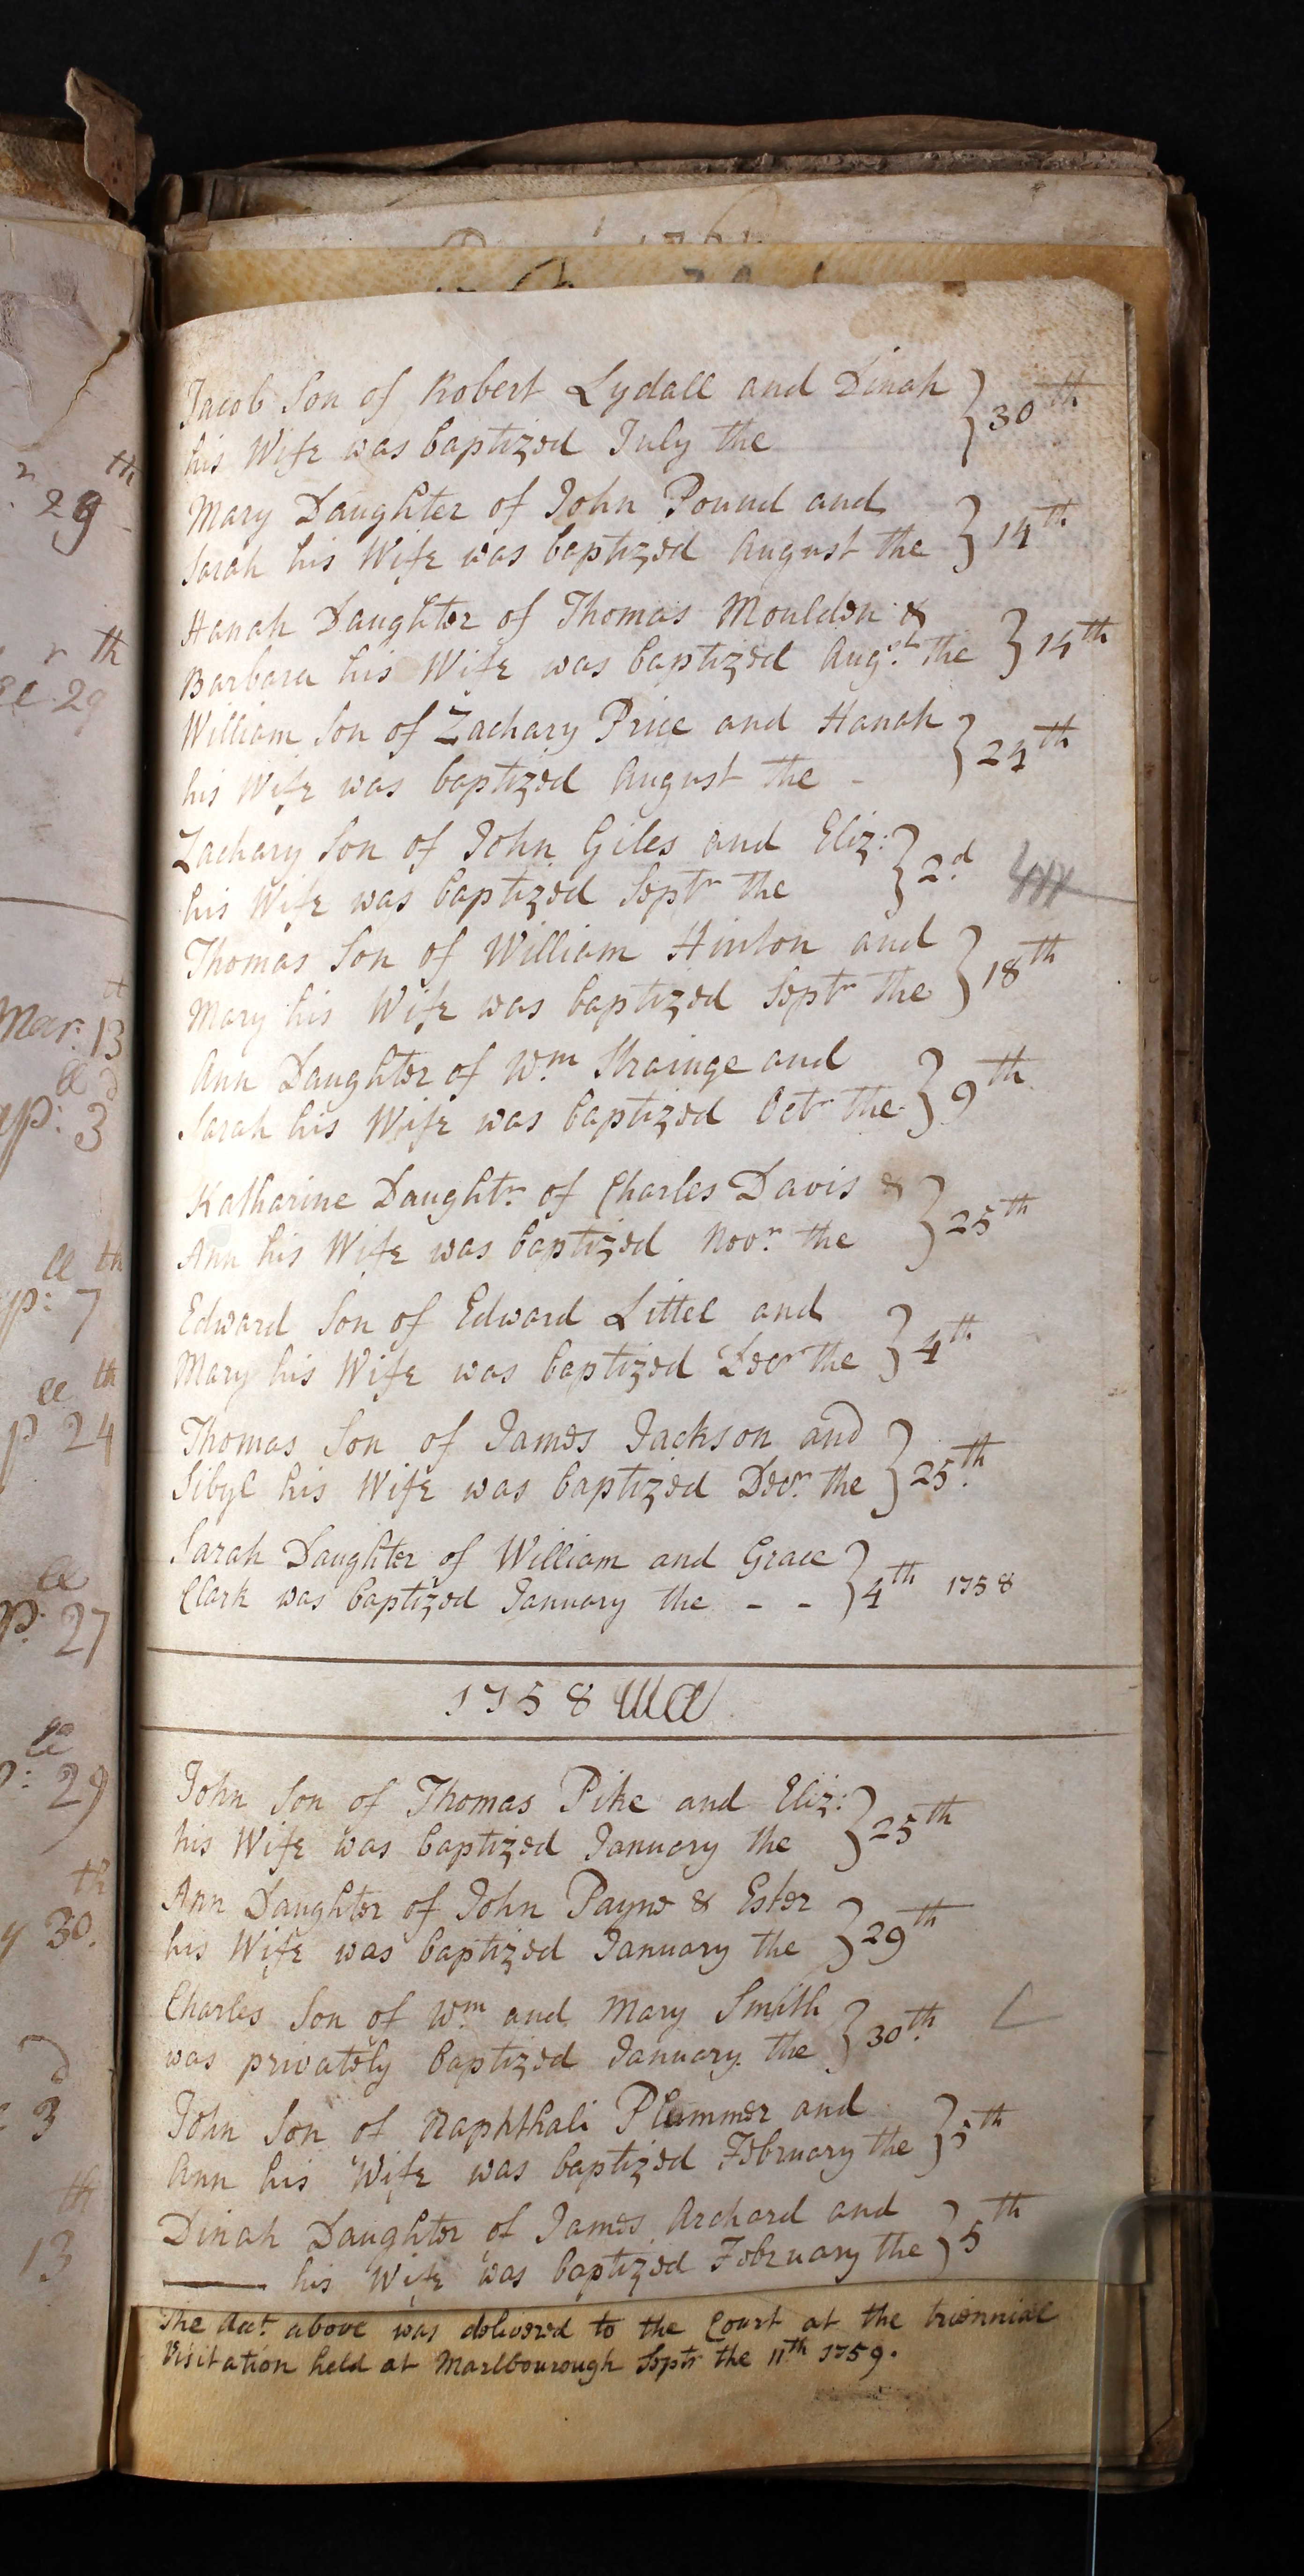 Jacob Son of Robert Lydall and Dinah
his Wife was baptized July the } 30th
Mary Daughter of John Pound and
Sarah his Wife was baptized August the } 14th
Hanah Daughter of Thomas Moulden &
Barbara his Wife was baptized Augst the } 14th
William Son of Zachary Price and Hanah
his Wife was baptized August the - } 24th
Zachary Son of John Giles and Eliz:
his Wife was baptized Septr the } 2d
Thomas Son of William Hinton and
Mary his Wife was baptized Septr the } 18th
Ann Daughter of Wm Strainge and
Sarah his Wife was baptized Octr the } 9th
Katharine Daughtr of Charles Davis &
Ann his Wife was baptized Novr the } 25th
Edward Son of Edward Littel and
Mary his Wife was baptized Decr the } 4th
Thomas Son of James Jackson and
Sibyl his Wife was baptized Decr the } 25th
Sarah Daughter of William and Grace
Clark was baptized January the - - } 4th 1758
1758
John Son of Thomas Pike and Eliz:
his Wife was baptized January the } 25th
Ann Daughter of John Payne & Ester
his Wife was baptized January the } 29th
Charles Son of Wm and Mary Smith
was privately baptized January the } 30th
John Son of Naphthali Plummer and
Ann his Wife was baptized February the } 5th
Dinah Daughter of James Archard and
—— his Wife was baptized February the } 5th
The Acct above was deliverd to the Court at the triennial
Visitation held at Marlbourough Septr the 11th 1759.